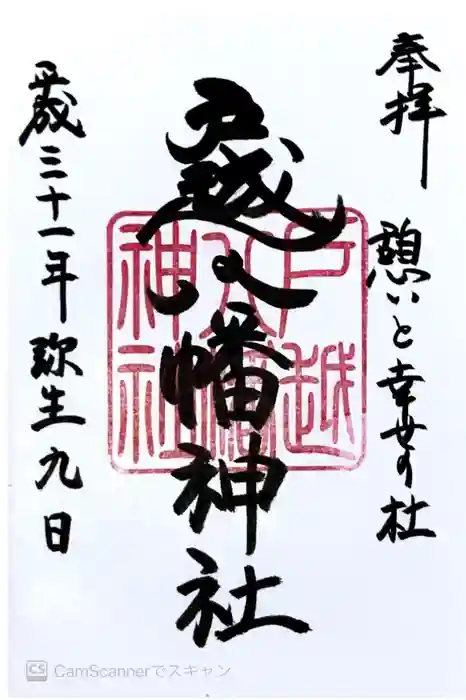 奉拝
憩いと幸せの杜
戸越八幡神社
戸越
八幡
神社
平成三十一年弥生九日
CS CamScannerでスキャン